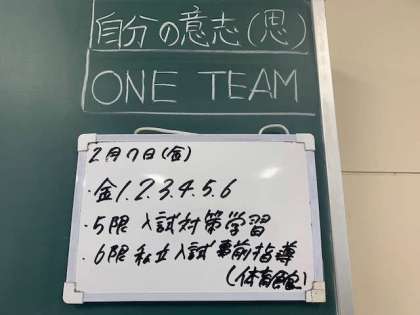 自分の意志(思)
ONE TEAM
2月7日(金)
・金1.2.3.4.5.6
・5限 入試対策学習
・6限 私立入試事前指導
(体育館)